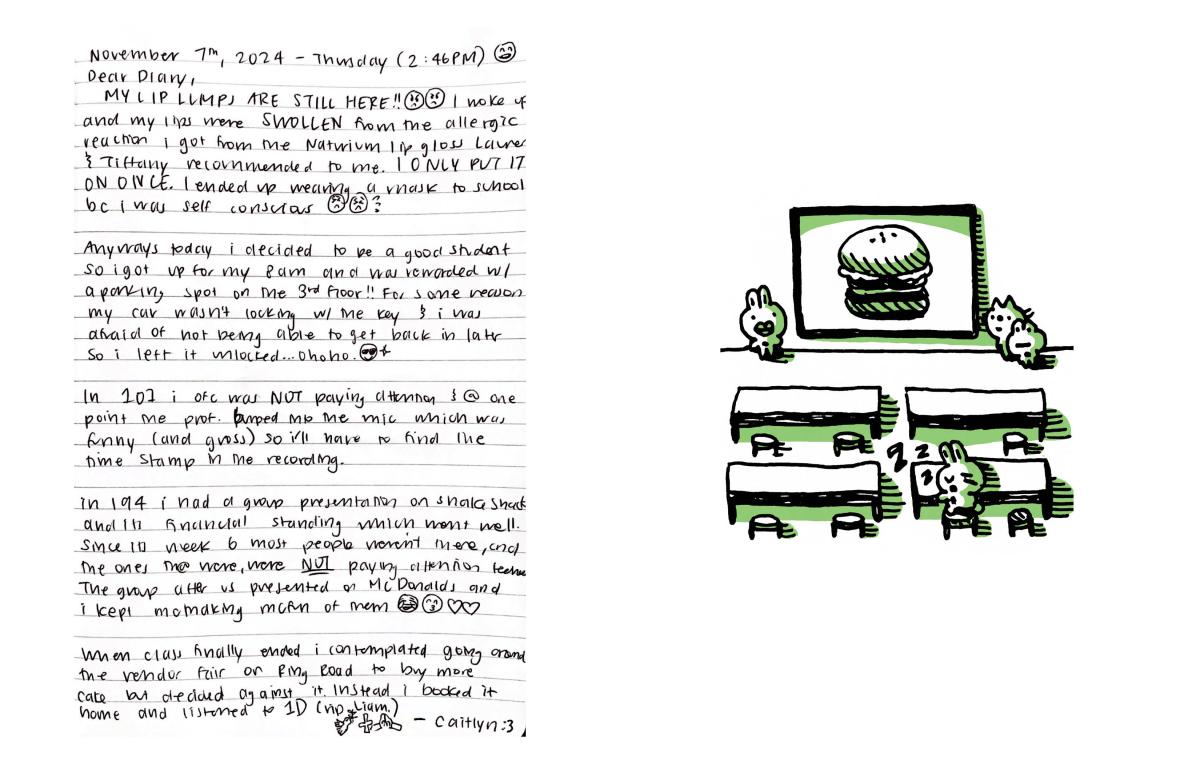 November 7th, 2024 - Thursday (2:46PM)
Dear Diary,
MY LIP LUMPS ARE STILL HERE!! I woke up
and my lips were SWOLLEN from the allergic
reaction i got from the Natrium lip gloss Lauren
& Tiffany recommended to me. I ONLY PUT IT
ON ONCE. I ended up wearing a mask to school
bc i was self conscious
Anyways today i decided to be a good student
so i got up for my 8am and was rewarded w/
a parking spot on the 3rd floor!! For some reason
my car wasn't locking w/ the key & i was
afraid of not being able to get back in later
so i left it unlocked...ohoho.
In 103 i ofc was NOT paying attention & @ one
point the prof. burped into the mic which was
funny (and gross) so i'll have to find the
time stamp in the recording.
In 194 i had a group presentation on shake shack
and its financial standing which went well.
Since its week 6 most people weren't there, and
the ones that were, were NOT paying attention
The group after us presented on McDonalds and
i kept making fun of them
When class finally ended i contemplated going around
the vendor fair on Ring Road to buy more
cake but decided against it. Instead i booked it
home and listened to 1D (rip Liam.)
- Caitlyn :3
z z z